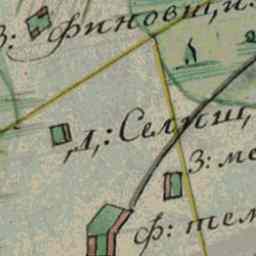 З: Финовш, и.
Д: Селищ,
З: ме
Ф: тем